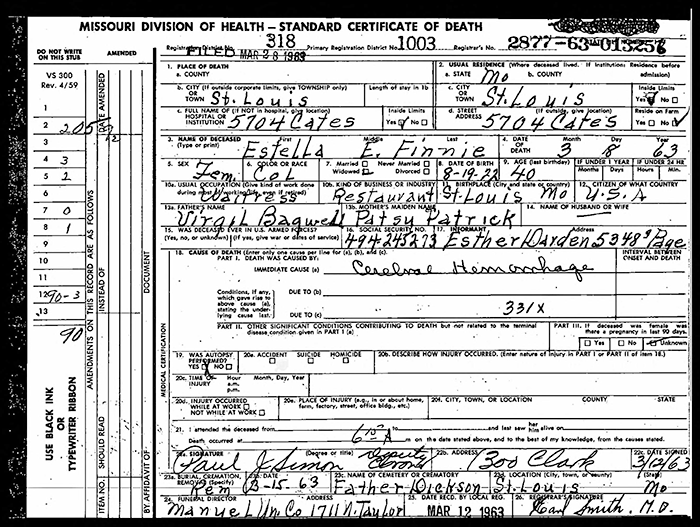 MISSOURI DIVISION OF HEALTH — STANDARD CERTIFICATE OF DEATH
DO NOT WRITE ON THIS STUB
AMENDED
FILED MAR 28 1963
Registration District No. 318 Primary Registration District No. 1003 Registrar's No. 2877-63-013257
VS 300
Rev. 4/59
1. PLACE OF DEATH
a. COUNTY
2. USUAL RESIDENCE (Where deceased lived. If institution: Residence before admission)
a. STATE Mo b. COUNTY
b. CITY (If outside corporate limits, give TOWNSHIP only) OR TOWN St. Louis
Length of stay in 1b
c. CITY OR TOWN St. Louis
Inside Limits Yes No
c. FULL NAME OF (If NOT in hospital, give location) HOSPITAL OR INSTITUTION 5704 Cates
Inside Limits Yes No
d. STREET ADDRESS (If outside, give location) 5704 Cates
Reside on Farm Yes No
3. NAME OF DECEASED (Type or print) First Middle Last
Estella E. Finnie
4. DATE OF DEATH Month Day Year
3 8 63
5. SEX Fem.
6. COLOR OR RACE Col
7. Married Never Married Widowed Divorced
8. DATE OF BIRTH 8-19-22
9. AGE (last birthday) 40
IF UNDER 1 YEAR Months Days
IF UNDER 24 HR Hours Min.
10a. USUAL OCCUPATION (Give kind of work done during most of working life, even if retired) Waitress
10b. KIND OF BUSINESS OR INDUSTRY Restaurant
11. BIRTHPLACE (City and state or country) St. Louis Mo
12. CITIZEN OF WHAT COUNTRY U.S.A
13a. FATHER'S NAME Virgil Bagwell
13b. MOTHER'S MAIDEN NAME Patsy Patrick
14. NAME OF HUSBAND OR WIFE
15. WAS DECEASED EVER IN U.S. ARMED FORCES? (Yes, no, or unknown) (If yes, give war or dates of service)
16. SOCIAL SECURITY NO. 494243273
17. INFORMANT Address Esther Darden 5348 Page
18. CAUSE OF DEATH (Enter only one cause per line for (a), (b), and (c).
PART I. DEATH WAS CAUSED BY:
INTERVAL BETWEEN ONSET AND DEATH
IMMEDIATE CAUSE (a) Cerebral Hemorrhage
Conditions, if any, which gave rise to above cause (a), stating the underlying cause last.
DUE TO (b)
DUE TO (c) 331X
PART II. OTHER SIGNIFICANT CONDITIONS CONTRIBUTING TO DEATH but not related to the terminal disease condition given in PART I (a)
PART III. If deceased was female was there a pregnancy in last 90 days.
Yes No Unknown
19. WAS AUTOPSY PERFORMED? YES NO
20a. ACCIDENT SUICIDE HOMICIDE
20b. DESCRIBE HOW INJURY OCCURRED. (Enter nature of injury in PART I or PART II of item 18.)
20c. TIME OF INJURY Hour Month, Day, Year
a.m.
p.m.
20d. INJURY OCCURRED WHILE AT WORK NOT WHILE AT WORK
20e. PLACE OF INJURY (e.g., in or about home, farm, factory, street, office bldg., etc.)
20f. CITY, TOWN, OR LOCATION COUNTY STATE
21. I attended the deceased from to and last saw her him alive on
Death occurred at m on the date stated above, and to the best of my knowledge, from the causes stated.
22a. SIGNATURE (Degree or title) Paul J. Simon Deputy Coroner
22b. ADDRESS 1300 Clark
22c. DATE SIGNED 3/12/63
23a. BURIAL, CREMATION, REMOVAL (Specify) Rem
23b. DATE 3-15-63
23c. NAME OF CEMETERY OR CREMATORY Father Dickson
23d. LOCATION (City, town, or county) (State) St. Louis Mo
24. FUNERAL DIRECTOR ADDRESS Manuel Un. Co 1711 N. Taylor
25. DATE RECD. BY LOCAL REG. MAR 12 1963
26. REGISTRAR'S SIGNATURE Earl Smith, M.D.
1
2
3
4 3
5 2
6
7 0
8 1
9
10
11
12 90-3
13
90
USE BLACK INK OR TYPEWRITER RIBBON
AMENDMENTS ON THIS RECORD ARE AS FOLLOWS
DATE AMENDED
INSTEAD OF
SHOULD READ
ITEM NO.
DOCUMENT
BY AFFIDAVIT OF
MEDICAL CERTIFICATION